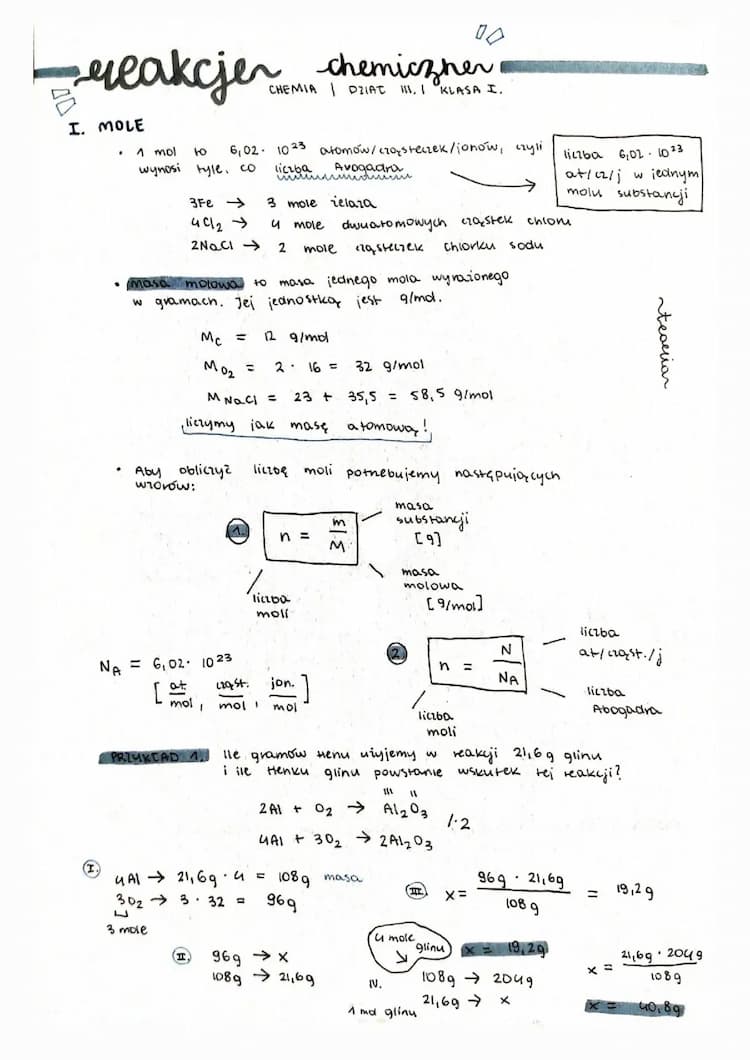 reakcje chemiczne
CHEMIA | DZIAŁ III. | KLASA I.
I. MOLE
• 1 mol to 6,02 · 10²³ atomów/cząsteczek/jonów, czyli
wynosi tyle, co liczba Avogadra
liczba 6,02 · 10²³
at/cz/j w jednym
molu substancji
3Fe → 3 mole żelaza
4Cl₂ → 4 mole dwuatomowych cząstek chloru
2NaCl → 2 mole cząsteczek chlorku sodu
• masa molowa to masa jednego mola wyrażonego
w gramach. Jej jednostką jest g/mol.
M_C = 12 g/mol
M_O₂ = 2 · 16 = 32 g/mol
M_NaCl = 23 + 35,5 = 58,5 g/mol
liczymy jak masę atomową!
~teoria~
• Aby obliczyć liczbę moli potrzebujemy następujących
wzorów:
1. n = m/M
masa
substancji
[g]
masa
molowa
[g/mol]
liczba
moli
N_A = 6,02 · 10²³
[at/mol, cząst./mol, jon./mol]
2. n = N/N_A
liczba
at/cząst./j
liczba
Abogadra
liczba
moli
PRZYKŁAD 1. Ile gramów tlenu użyjemy w reakcji 21,6g glinu
i ile tlenku glinu powstanie wskutek tej reakcji?
III II
2Al + O₂ → Al₂O₃ /·2
4Al + 3O₂ → 2Al₂O₃
I. 4Al → 21,6g · 4 = 108g masa
3O₂ → 3 · 32 = 96g
3 mole
II. 96g → x
108g → 21,6g
III. x = 96g · 21,6g / 108g = 19,2g
x = 19,2g
4 mole
glinu
IV. 108g → 204g
21,6g → x
1 mol glinu
x = 21,6g · 204g / 108g
x = 40,8g